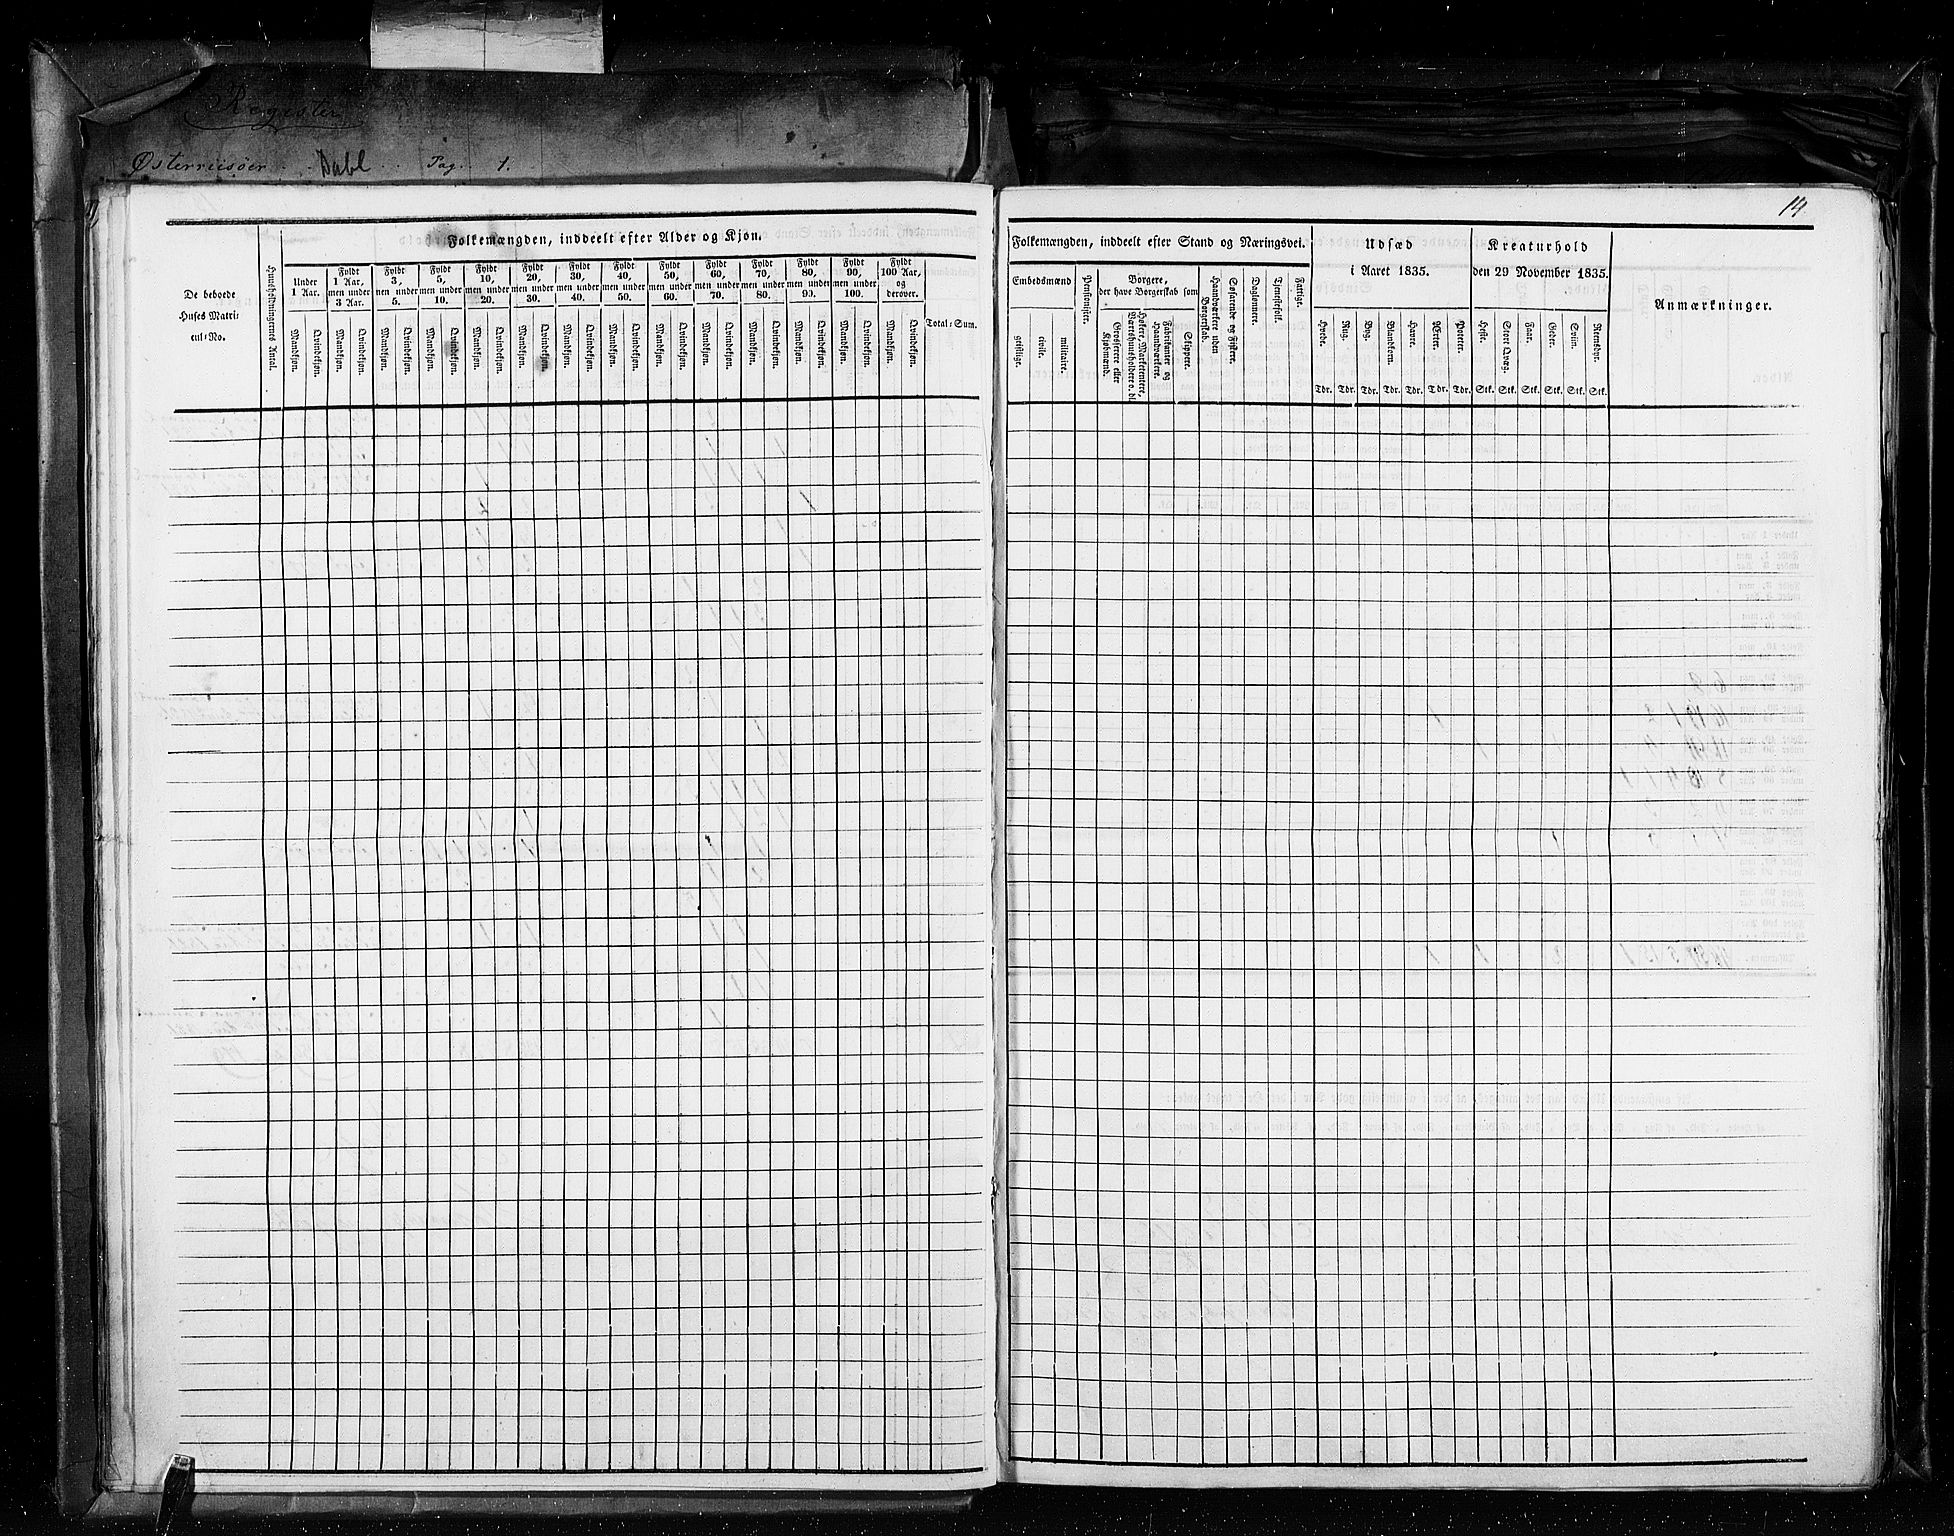 Register
Østerriisöer . . . Dahl . . . Pag. 1.
14.
Folkemængden, inddeelt efter Alder og Kjøn.
De beboede Huses Matricul-No.
Huusholdningernes Antal.
Under 1 Aar.
Fyldt 1 Aar, men under 3 Aar.
Fyldt 3, men under 5.
Fyldt 5, men under 10.
Fyldt 10, men under 20.
Fyldt 20, men under 30.
Fyldt 30, men under 40.
Fyldt 40, men under 50.
Fyldt 50, men under 60.
Fyldt 60, men under 70.
Fyldt 70, men under 80.
Fyldt 80, men under 90.
Fyldt 90, men under 100.
Fyldt 100 Aar, og derover.
Mandkjøn. Qvindekjøn. Mandkjøn. Qvindekjøn. Mandkjøn. Qvindekjøn. Mandkjøn. Qvindekjøn. Mandkjøn. Qvindekjøn. Mandkjøn. Qvindekjøn. Mandkjøn. Qvindekjøn. Mandkjøn. Qvindekjøn. Mandkjøn. Qvindekjøn. Mandkjøn. Qvindekjøn. Mandkjøn. Qvindekjøn. Mandkjøn. Qvindekjøn. Mandkjøn. Qvindekjøn. Mandkjøn. Qvindekjøn.
Total-Sum.
Folkemængden, inddeelt efter Stand og Næringsvei.
Embedsmænd
geistlige. civile. militaire.
Pensionister.
Borgere, der have Borgerskab som
Grosserere eller Kjøbmænd.
Høkere, Marketentere, Værtshuusholdere o. dl.
Fabrikanter og Haandværkere.
Skippere.
Haandværkere uden Borgerskab.
Søfarende og Fiskere.
Daglønnere.
Tjenestefolk.
Fattige.
Udsæd i Aaret 1835.
Hvede. Rug. Byg. Blandkorn. Havre. Erter. Poteter.
Tdr. Tdr. Tdr. Tdr. Tdr. Tdr. Tdr.
Kreaturhold den 29 November 1835.
Heste. Stort Qvæg. Faar. Geder. Sviin. Rensdyr.
Stk. Stk. Stk. Stk. Stk. Stk.
Anmærkninger.